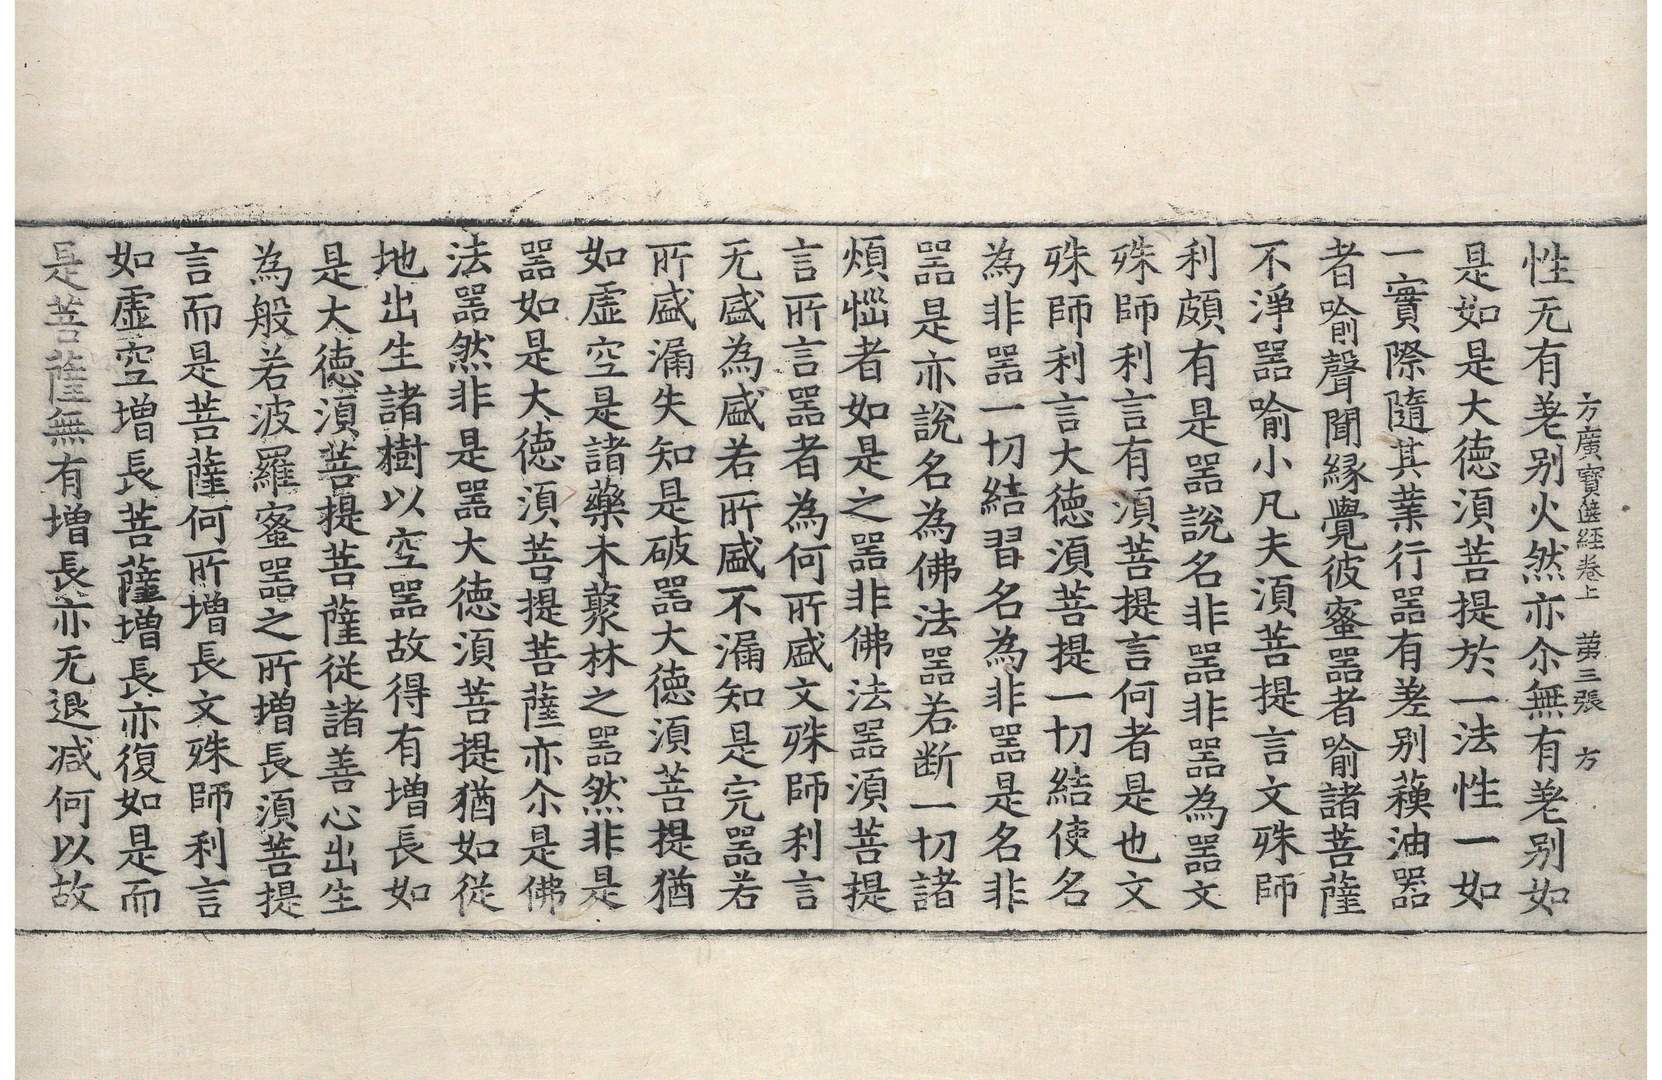 方廣寶篋經卷上 第三張 方
性无有差别火然亦尒無有差别如
是如是大德湏菩提於一法性一如
一實際隨其業行器有差别蘓油器
者喻聲聞縁覺彼蜜器者喻諸菩薩
不淨器喻小凡夫湏菩提言文殊師
利頗有是器說名非器非器為器文
殊師利言有湏菩提言何者是也文
殊師利言大德湏菩提一切結使名
為非器一切結習名為非器是名非
器是亦說名為佛法器若断一切諸
煩惱者如是之器非佛法器湏菩提
言所言器者為何所盛文殊師利言
无盛為盛若所盛不漏知是完器若
所盛漏失知是破器大德湏菩提猶
如虛空是諸藥木藂林之器然非是
器如是大德湏菩提菩薩亦尒是佛
法器然非是器大德湏菩提猶如従
地出生諸樹以空器故得有增長如
是大德湏菩提菩薩従諸善心出生
為般若波羅蜜器之所增長湏菩提
言而是菩薩何所增長文殊師利言
如虛空增長菩薩增長亦復如是而
是菩薩無有增長亦无退减何以故